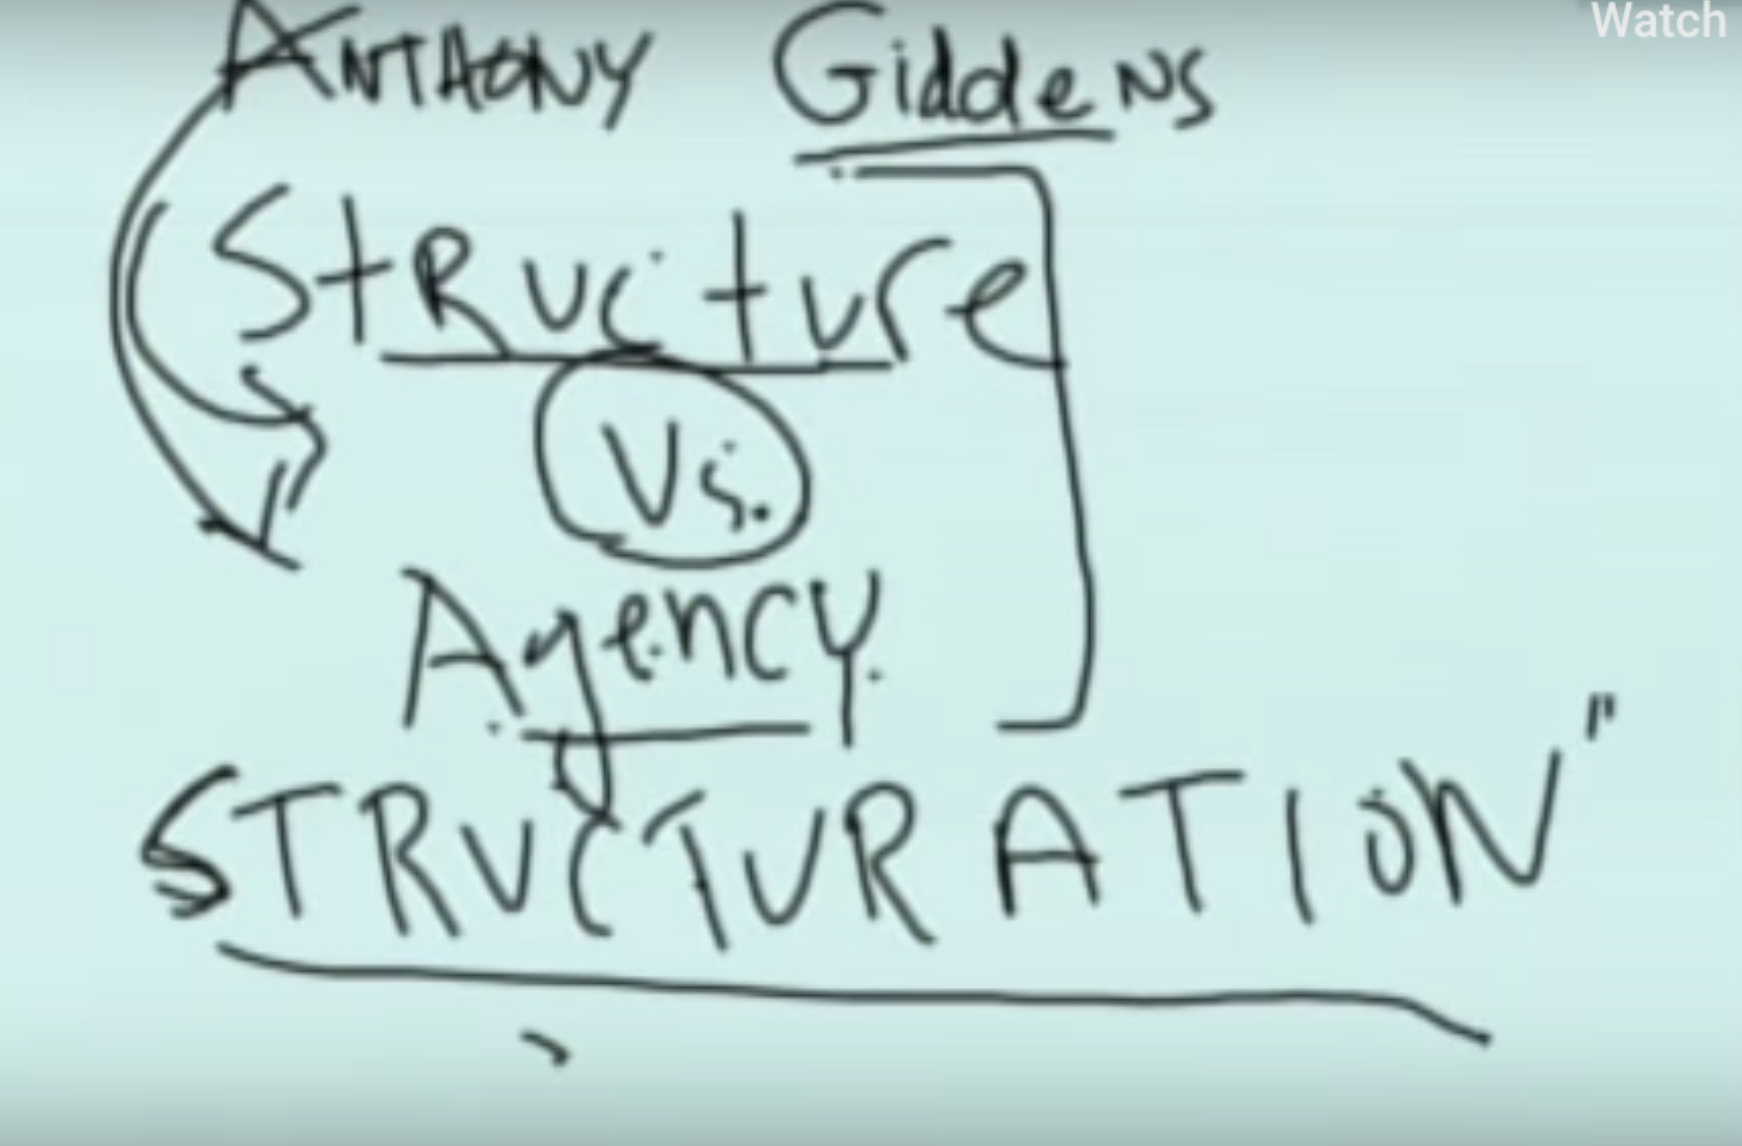 Watch
ANTHONY GiddeNS
StRucture
Vs.
Agency.
STRUCTURATION"